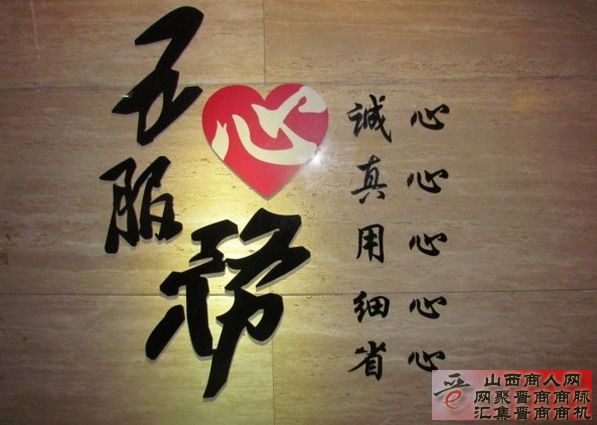 五心
服
务
诚心
真心
用心
细心
省心
晋e
山西商人网
网聚晋商商脉
汇集晋商商机